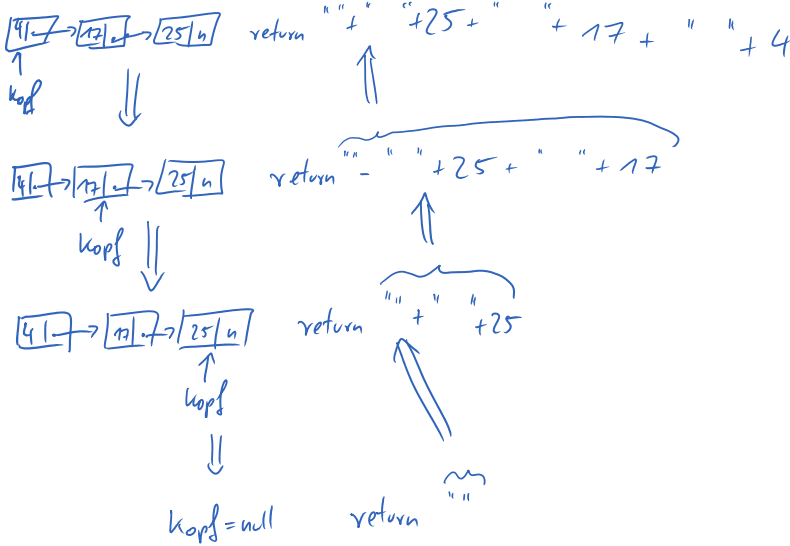 4 17 25 n return "" + " " + 25 + " " + 17 + " " + 4
kopf
4 17 25 n return "" - " " + 25 + " " + 17
kopf
4 17 25 n return "" + " " + 25
kopf
kopf = null return ""